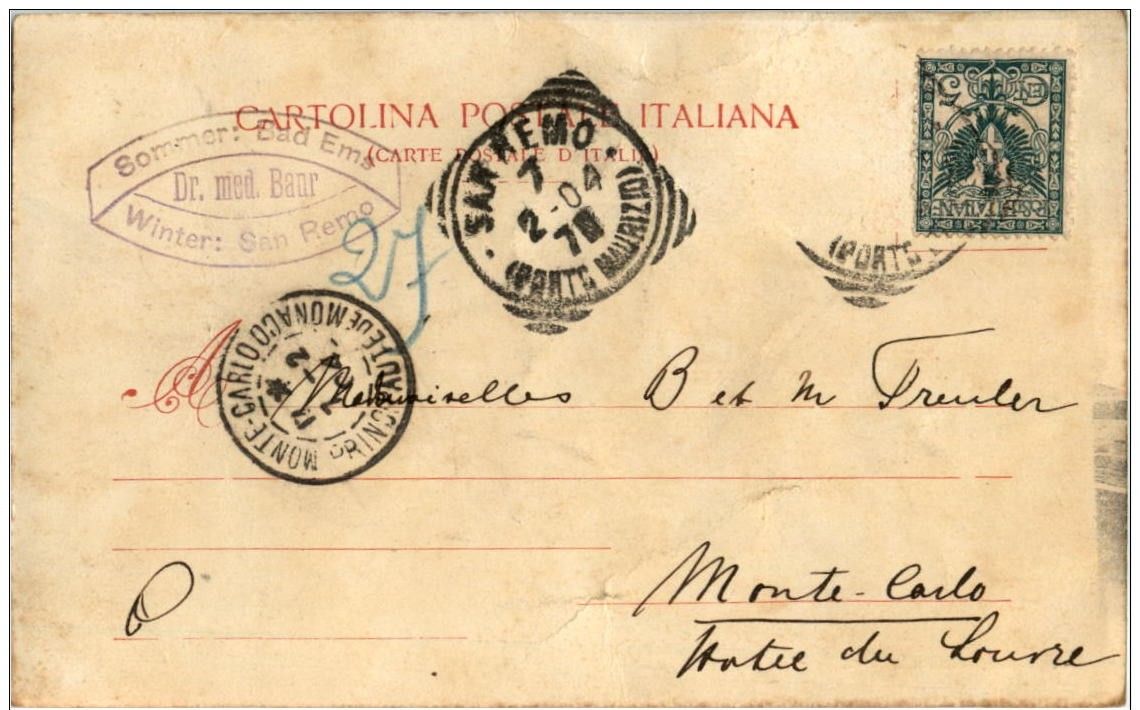 CARTOLINA POSTALE ITALIANA
(CARTE POSTALE D'ITALIE)
Sommer: Bad Ems
Dr. med. Baur
Winter: San Remo
SAN REMO
7
2-04
7
(PORTO MAURIZIO)
(PORTO
CEN 5
27
MONTE-CARLO
PRINCIPAUTÉ DE MONACO
2
A Mesdemoiselles B et M Treuler
Monte-Carlo
Hotel du Louvre